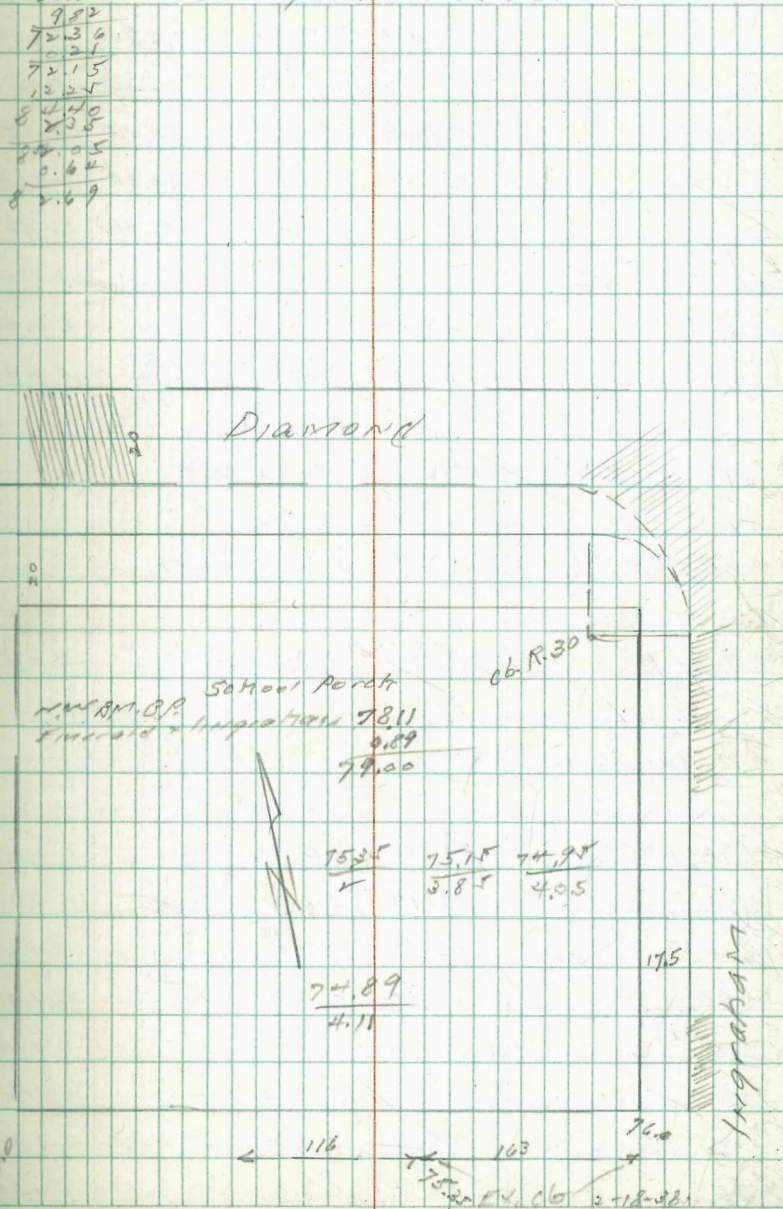 9 8 2
72.36
0.21
72.15
12.25
84.40
2.35
82.05
0.64
82.69
Diamond
20
20
cb. R. 30
School Porch
N.W. B.M. B.P.
Emerald + Ingraham 78.11
0.89
79.00
75.35 75.15 74.95
2 3.85 4.05
74.89
4.11
17.5
Ingraham
76.0
116 163
75.35 Ex. cb 2-18-38